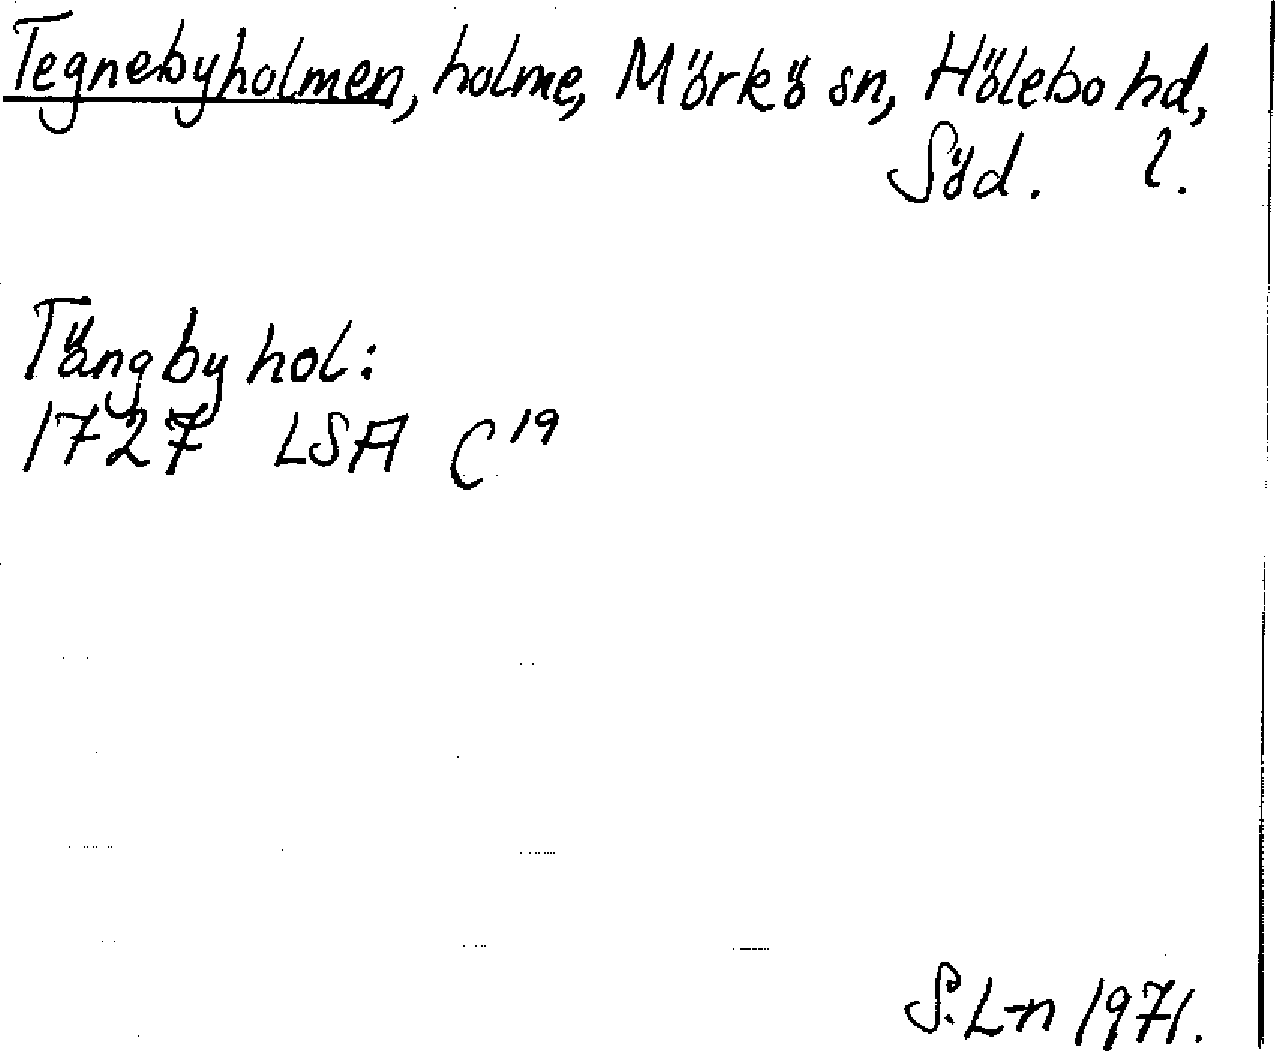 Tegnebyholmen, holme, Mörkö sn, Hölebo hd,
Söd. l.
Tängby hol:
1727 LSA C 19
S. L-n 1971.